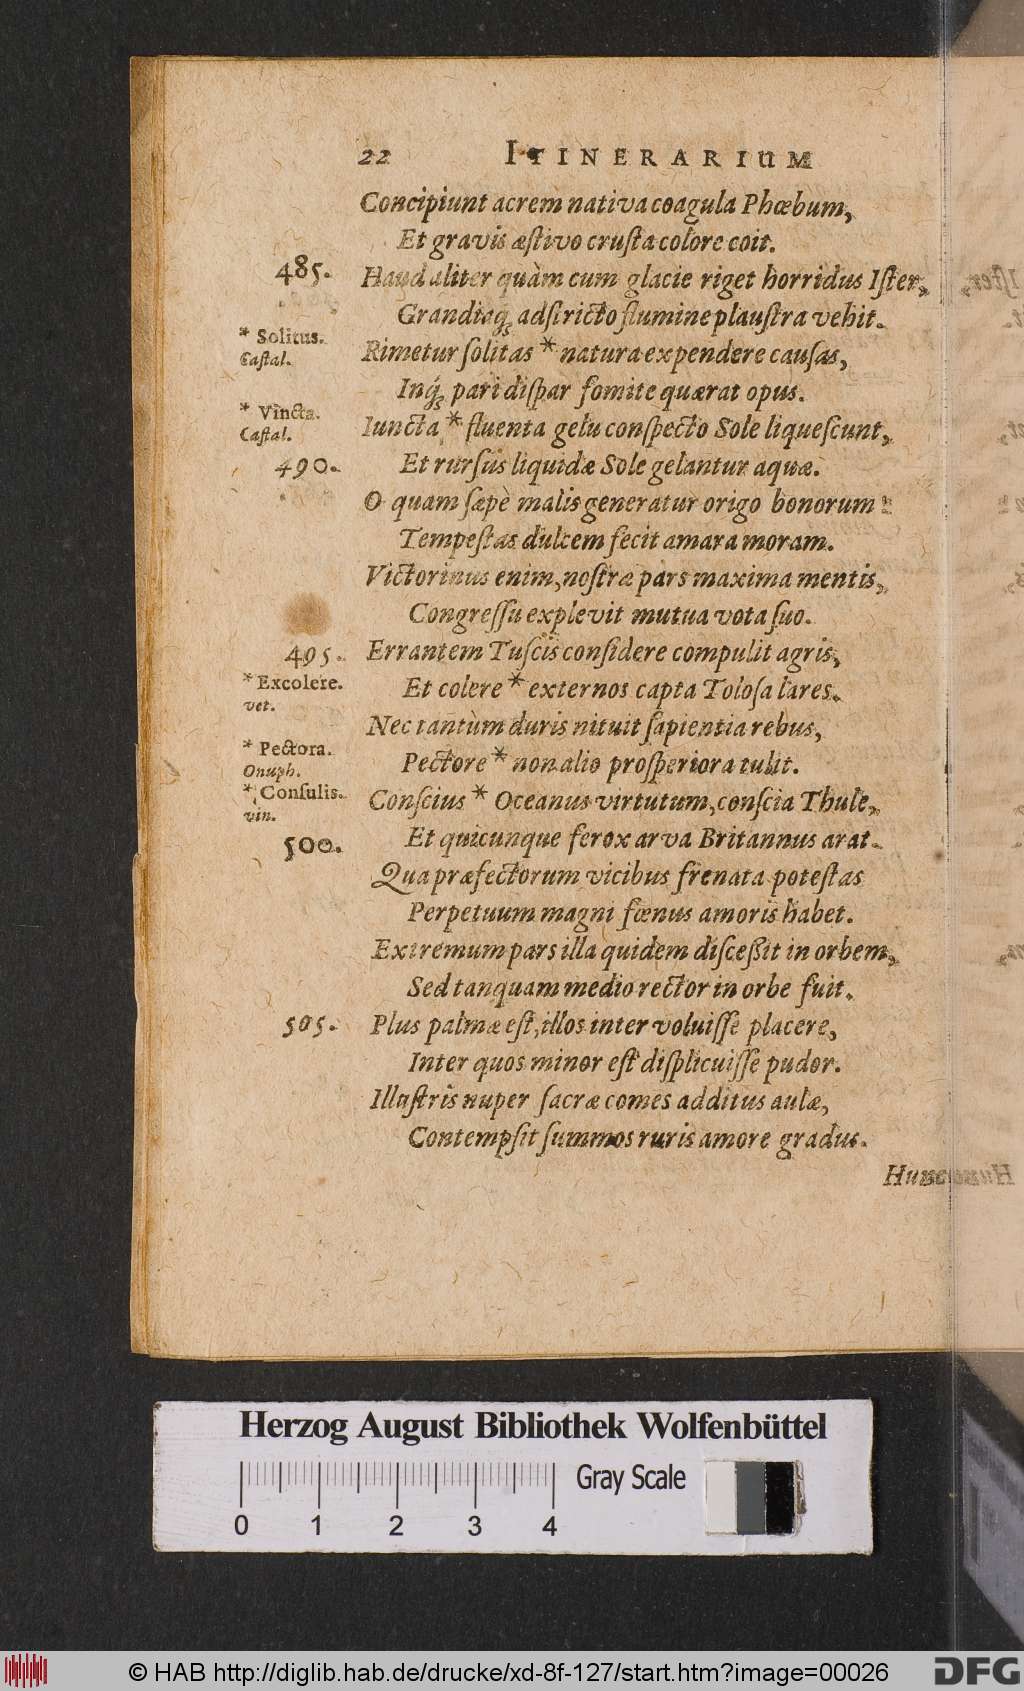 22 ITINERARIUM
Concipiunt acrem nativa coagula Phœbum,
Et gravis æſtivo cruſta colore coit.
485. Haud aliter quàm cum glacie riget horridus Iſter,
Grandiaq́; adſtricto flumine plauſtra vehit.
* Solitus. Caſtal.
Rimetur ſolitas * natura expendere cauſas,
Inq́; pari diſpar fomite quærat opus.
* Vincta. Caſtal.
Iuncta * fluenta gelu conſpecto Sole liqueſcunt,
490. Et rurſus liquidæ Sole gelantur aquæ.
O quam ſæpè malis generatur origo bonorum!
Tempeſtas dulcem fecit amara moram.
Victorinus enim, noſtræ pars maxima mentis,
Congreſſu explevit mutua vota ſuo.
495. Errantem Tuſcis conſidere compulit agris,
* Excolere. vet.
Et colere * externos capta Toloſa lares.
Nec tantùm duris nituit ſapientia rebus,
* Pectora. Onuph.
Pectore * non alio proſperiora tulit.
* Conſulis. vin.
Conſcius * Oceanus virtutum, conſcia Thule,
500. Et quicunque ferox arva Britannus arat.
Qua præfectorum vicibus frenata poteſtas
Perpetuum magni fœnus amoris habet.
Extremum pars illa quidem diſceßit in orbem,
Sed tanquam medio rector in orbe fuit.
505. Plus palmæ eſt, illos inter voluiſſe placere,
Inter quos minor eſt diſplicuiſſe pudor.
Illuſtris nuper ſacræ comes additus aulæ,
Contempſit ſummos ruris amore gradus.
Hunc
Herzog August Bibliothek Wolfenbüttel
Gray Scale
0 1 2 3 4
© HAB http://diglib.hab.de/drucke/xd-8f-127/start.htm?image=00026
DFG